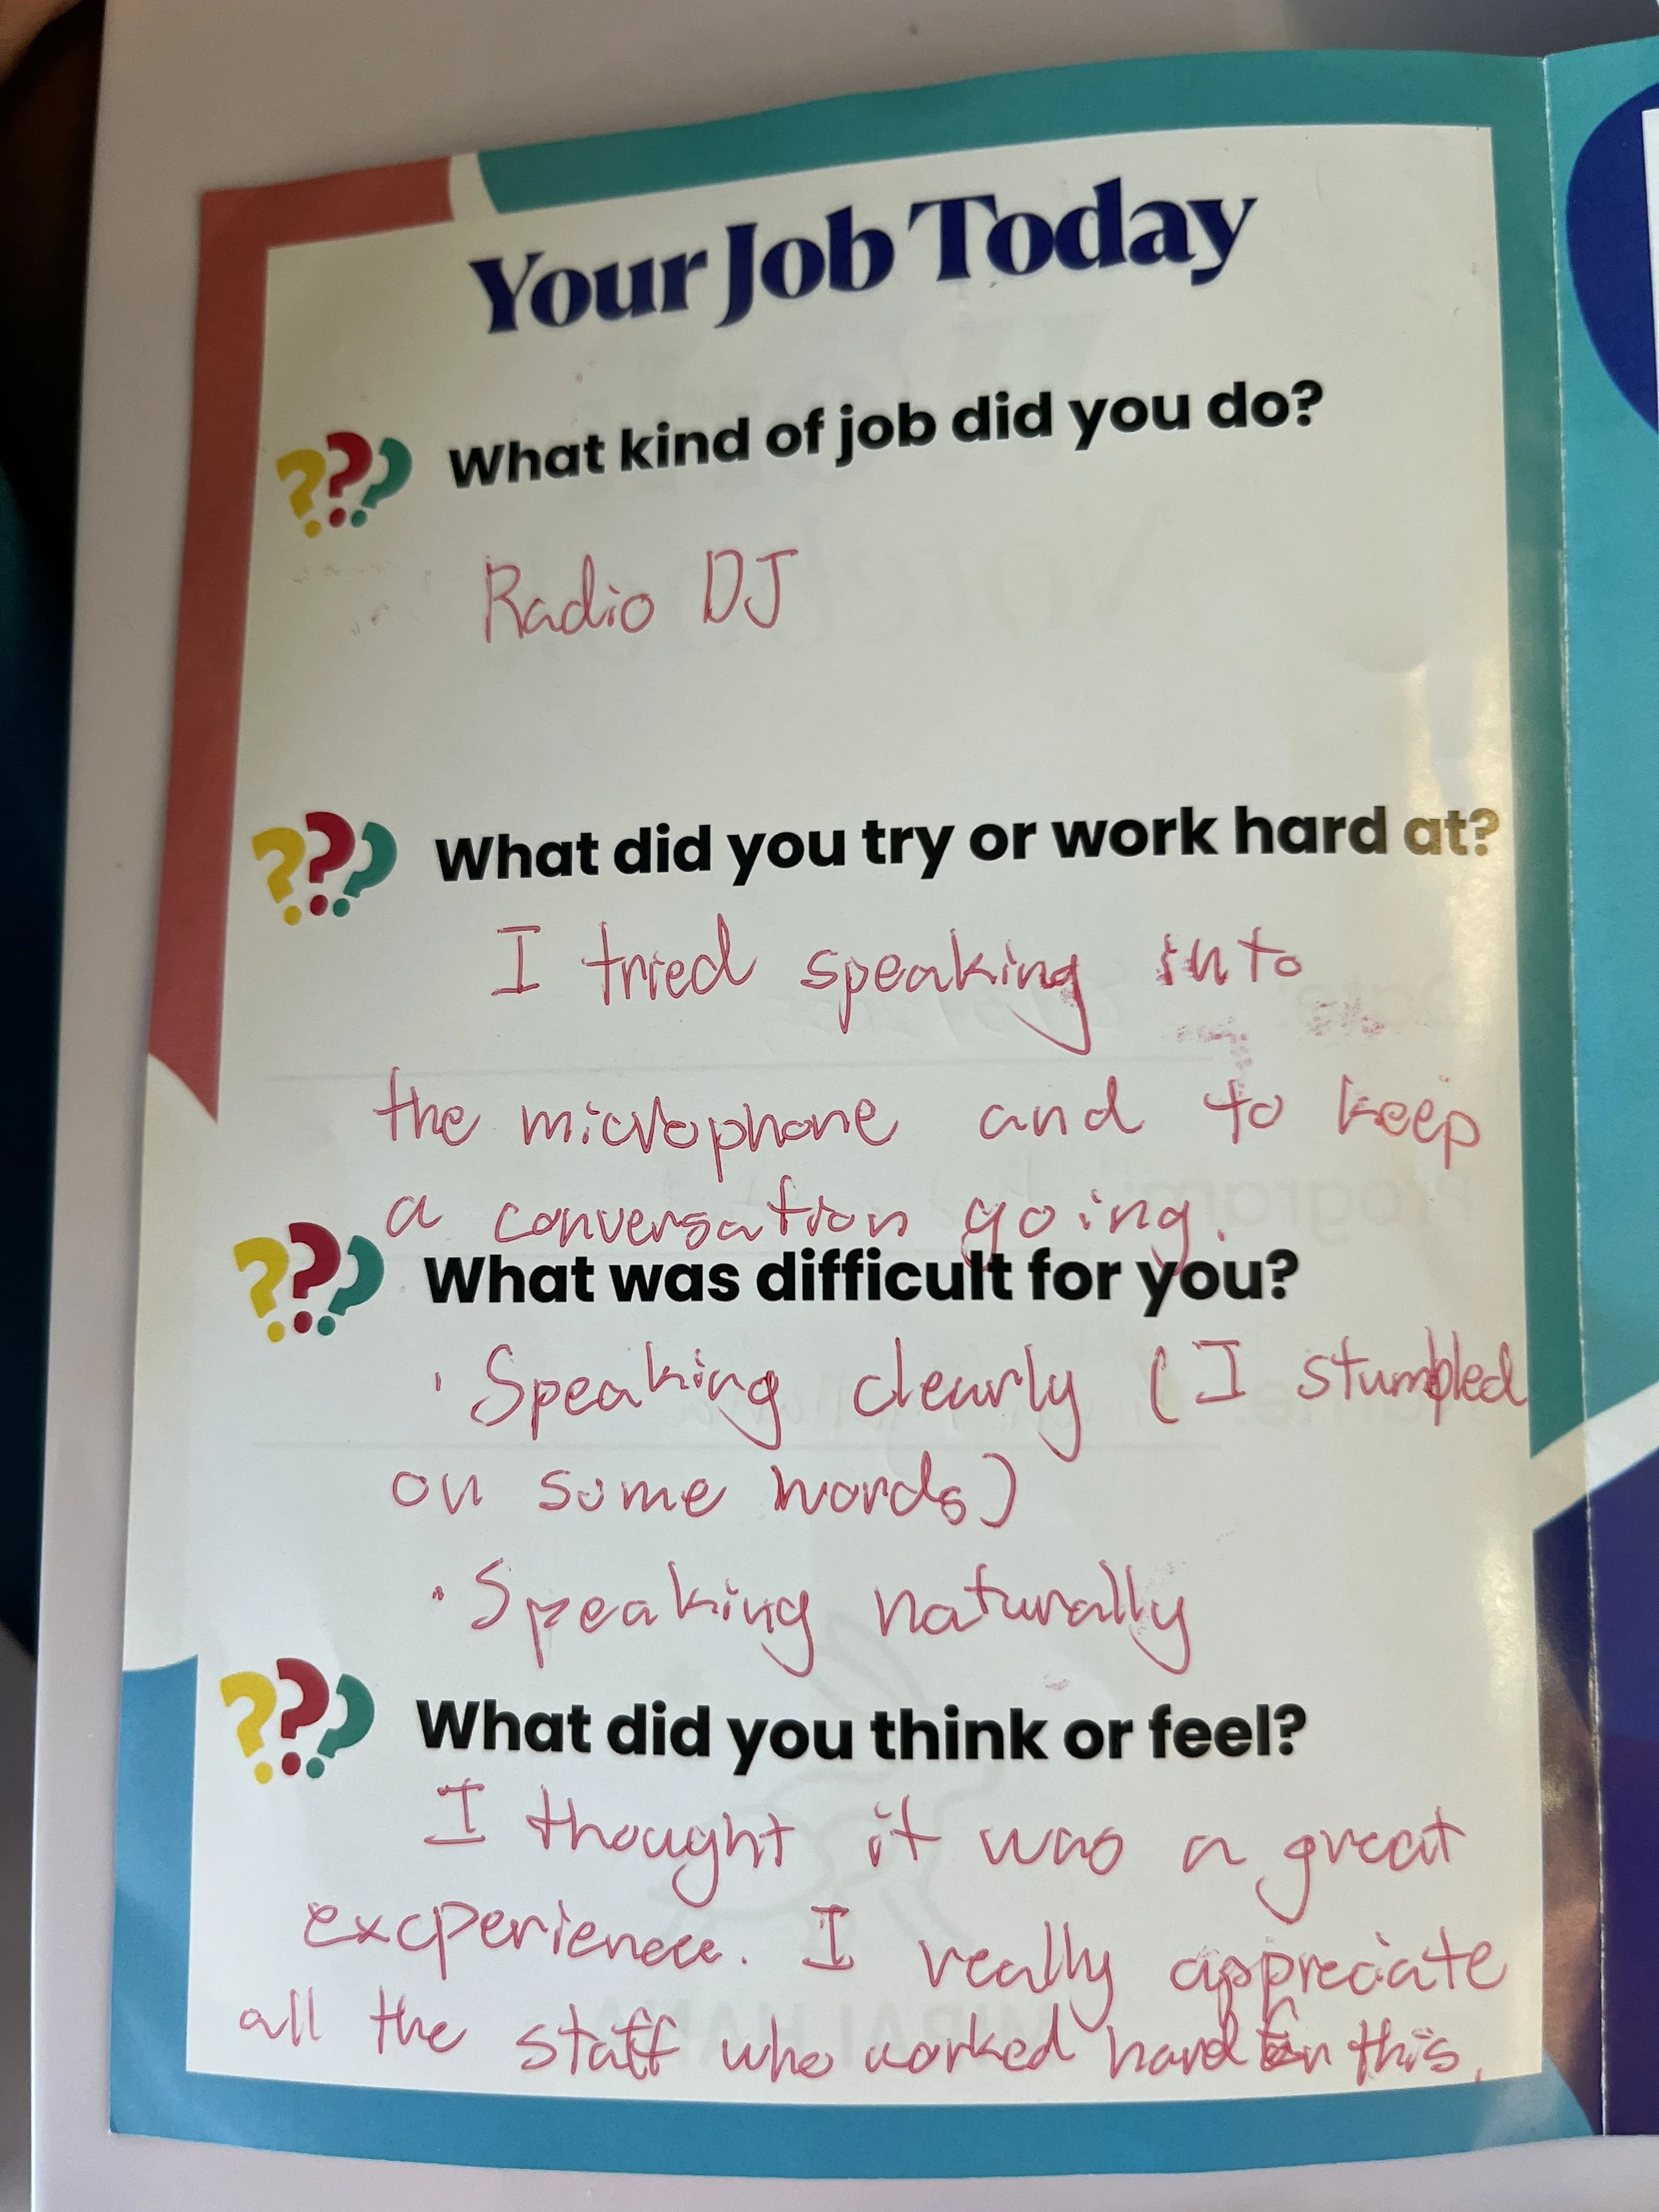 Your Job Today
??? What kind of job did you do?
Radio DJ
??? What did you try or work hard at?
I tried speaking into
the microphone and to keep
a conversation going.
??? What was difficult for you?
· Speaking clearly (I stumbled
on some words)
· Speaking naturally
??? What did you think or feel?
I thought it was a great
excperience. I really appreciate
all the staff who worked hard on this.